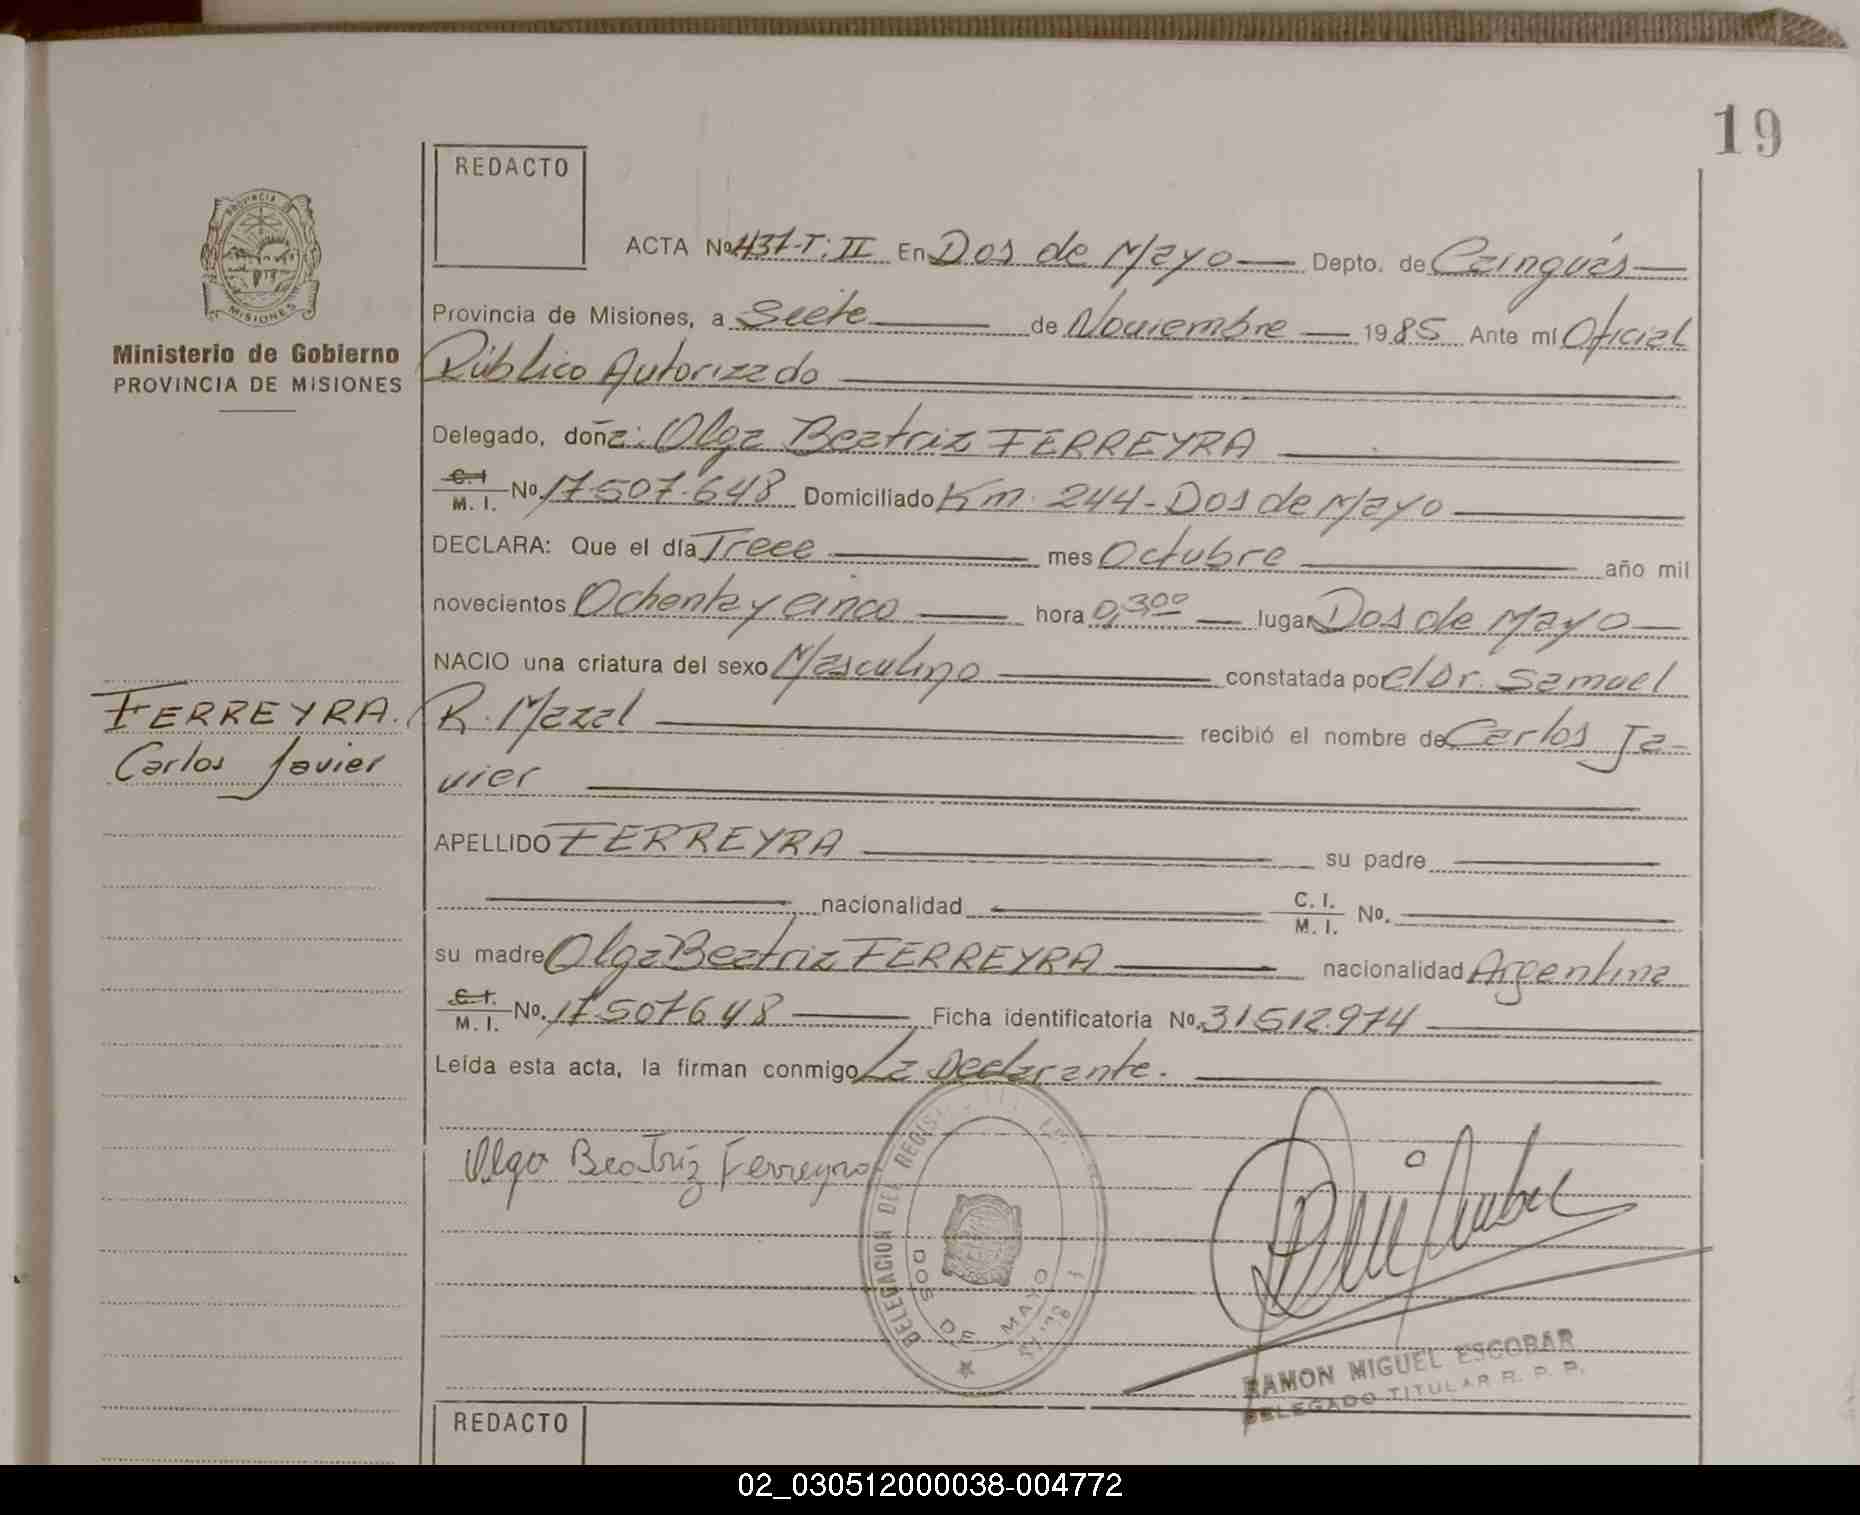 19
REDACTO
PROVINCIA DE
MISIONES
Ministerio de Gobierno
PROVINCIA DE MISIONES
ACTA Nº 437-T: II En Dos de Mayo Depto. de Cainguás
Provincia de Misiones, a Siete de Noviembre 1985 Ante mí Oficial
Público Autorizado
Delegado, doña: Olga Beatriz FERREYRA
C.I. M. I. Nº 17.507.648 Domiciliado Km. 244-Dos de Mayo
DECLARA: Que el día Trece mes Octubre año mil
novecientos Ochenta y cinco hora 0,3,00 lugar Dos de Mayo
NACIO una criatura del sexo Masculino constatada por el Dr. Samuel
FERREYRA. R. Mazal recibió el nombre de Carlos Ja-
Carlos Javier vier
APELLIDO FERREYRA su padre
nacionalidad C. I. M. I. Nº.
su madre Olga Beatriz FERREYRA nacionalidad Argentina
C. I. M. I. Nº. 17.507.648 Ficha identificatoria Nº. 31.512.974
Leída esta acta, la firman conmigo La Declarante.
Olga Beatriz Ferreyra
DELEGACION DEL REGIS
DOS DE MAYO
RAMON MIGUEL ESCOBAR
DELEGADO TITULAR R. P. P.
REDACTO
02_030512000038-004772